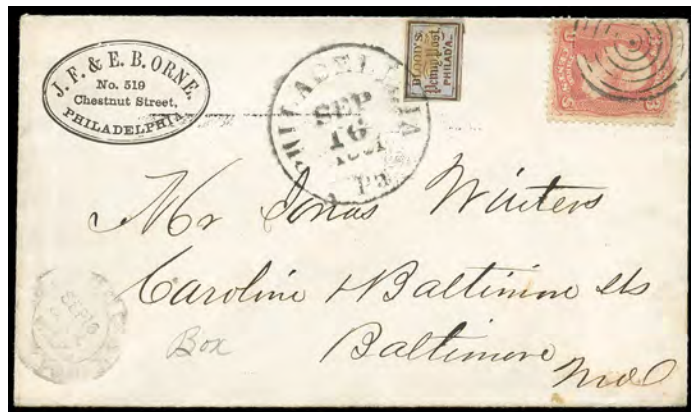 J. F. & E. B. ORNE.
No. 519
Chestnut Street,
PHILADELPHIA
BLOOD'S
Penny Post
PHILAD'A.
PHILADELPHIA
SEP
16
1861
Pa
Mr Jonas Winters
Caroline & Baltimore Sts
Baltimore
Md
Box
SEP 16